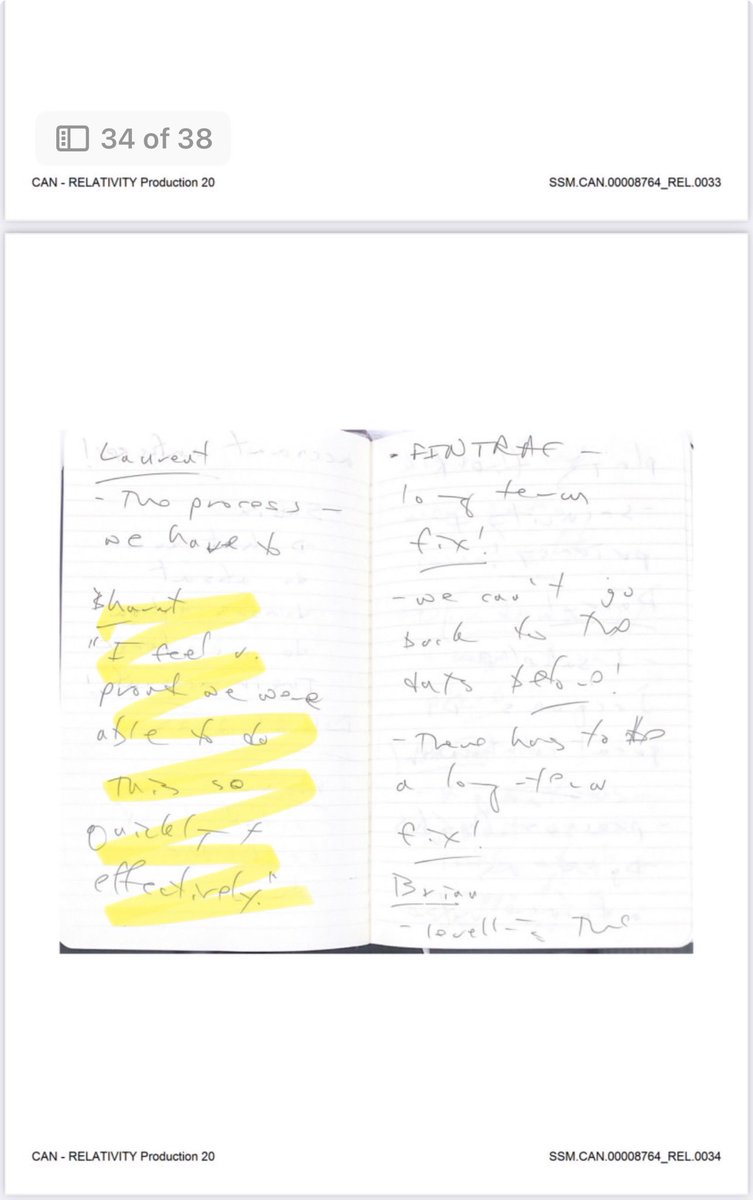 34 of 38
CAN - RELATIVITY Production 20
SSM.CAN.00008764_REL.0033
Laurent
- The process -
we have to
Bharat
"I feel v.
proud we were
able to do
this so
quickly +
effectively."
• FINTRAC -
long term
fix!
- we can't go
back to the
days before!
- There has to be
a long-term
fix!
Brian
- levelling the
CAN - RELATIVITY Production 20
SSM.CAN.00008764_REL.0034